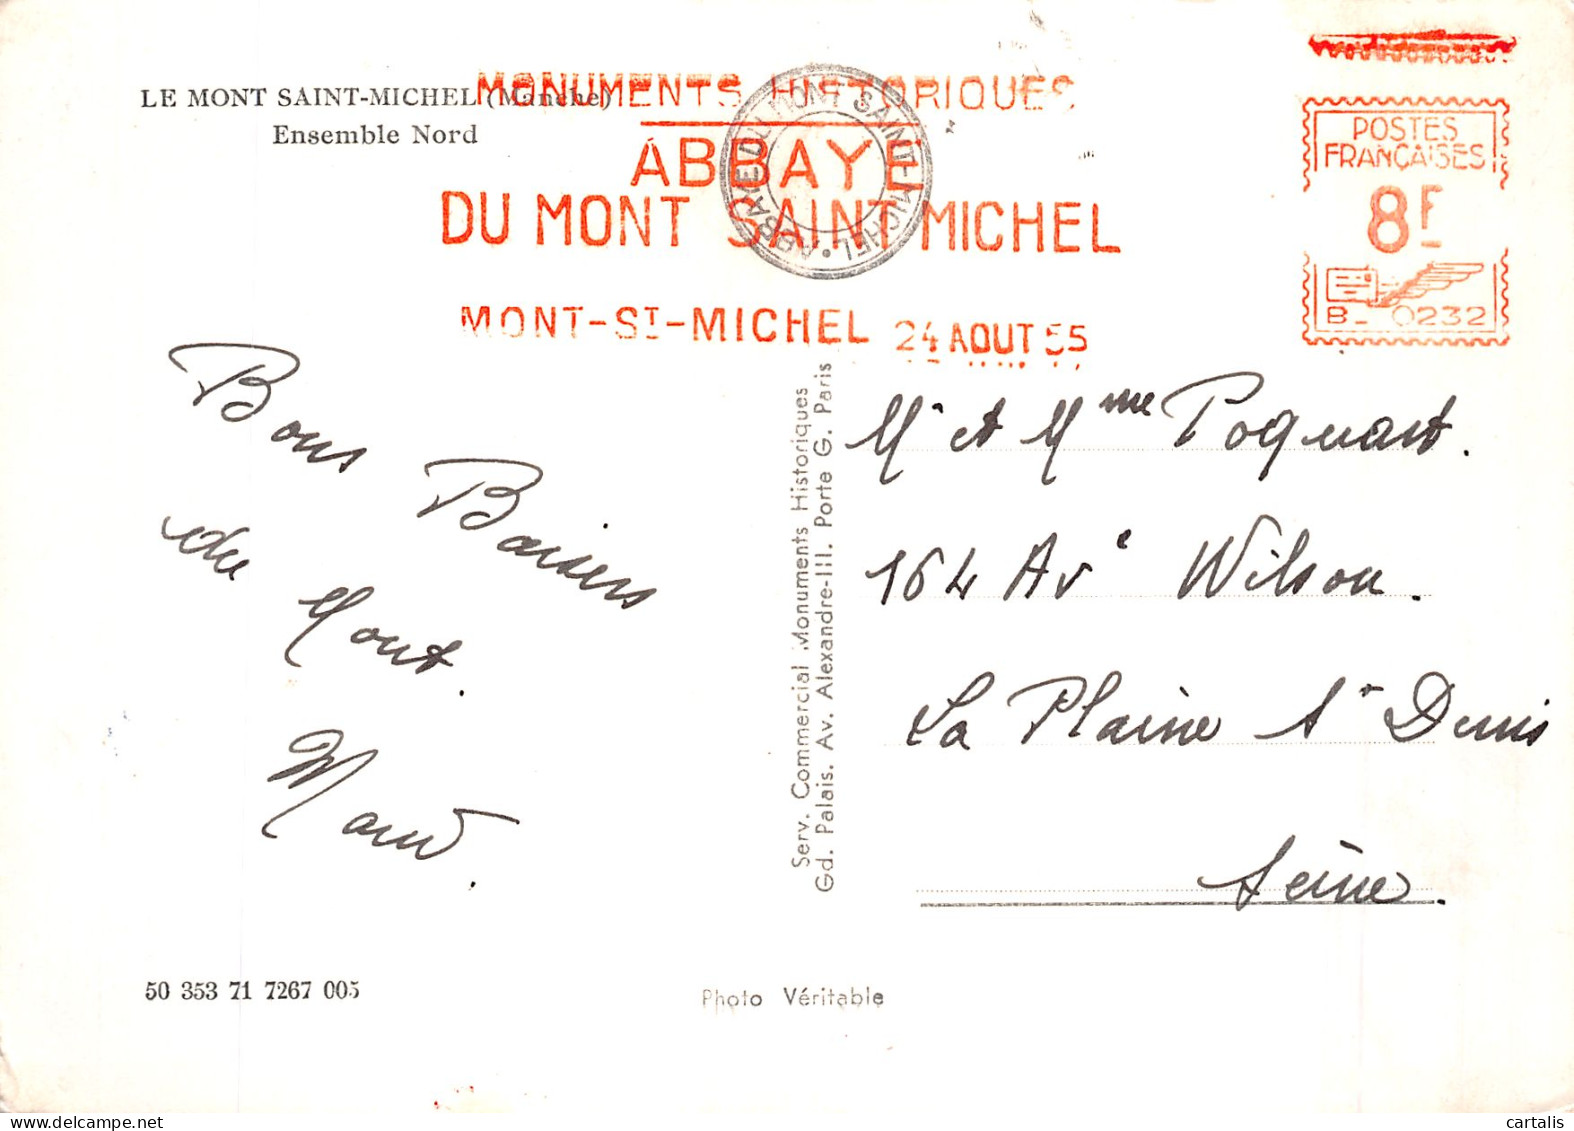 LE MONT SAINT-MICHEL (Manche)
Ensemble Nord
MONUMENTS HISTORIQUES
ABBAYE
DU MONT SAINT MICHEL
MONT-ST-MICHEL 24 AOUT 55
ABBAYE DU MONT SAINT-MICHEL
POSTES
FRANÇAISES
8F
B_0232
Bons Baisers
du Mont.
Maud.
Serv. Commercial Monuments Historiques
Gd. Palais. Av. Alexandre-III. Porte G. Paris
Mr et Mme Poquart.
164 Ave Wilson.
La Plaine St Denis
Seine.
50 353 71 7267 005
Photo Véritable
cartalis